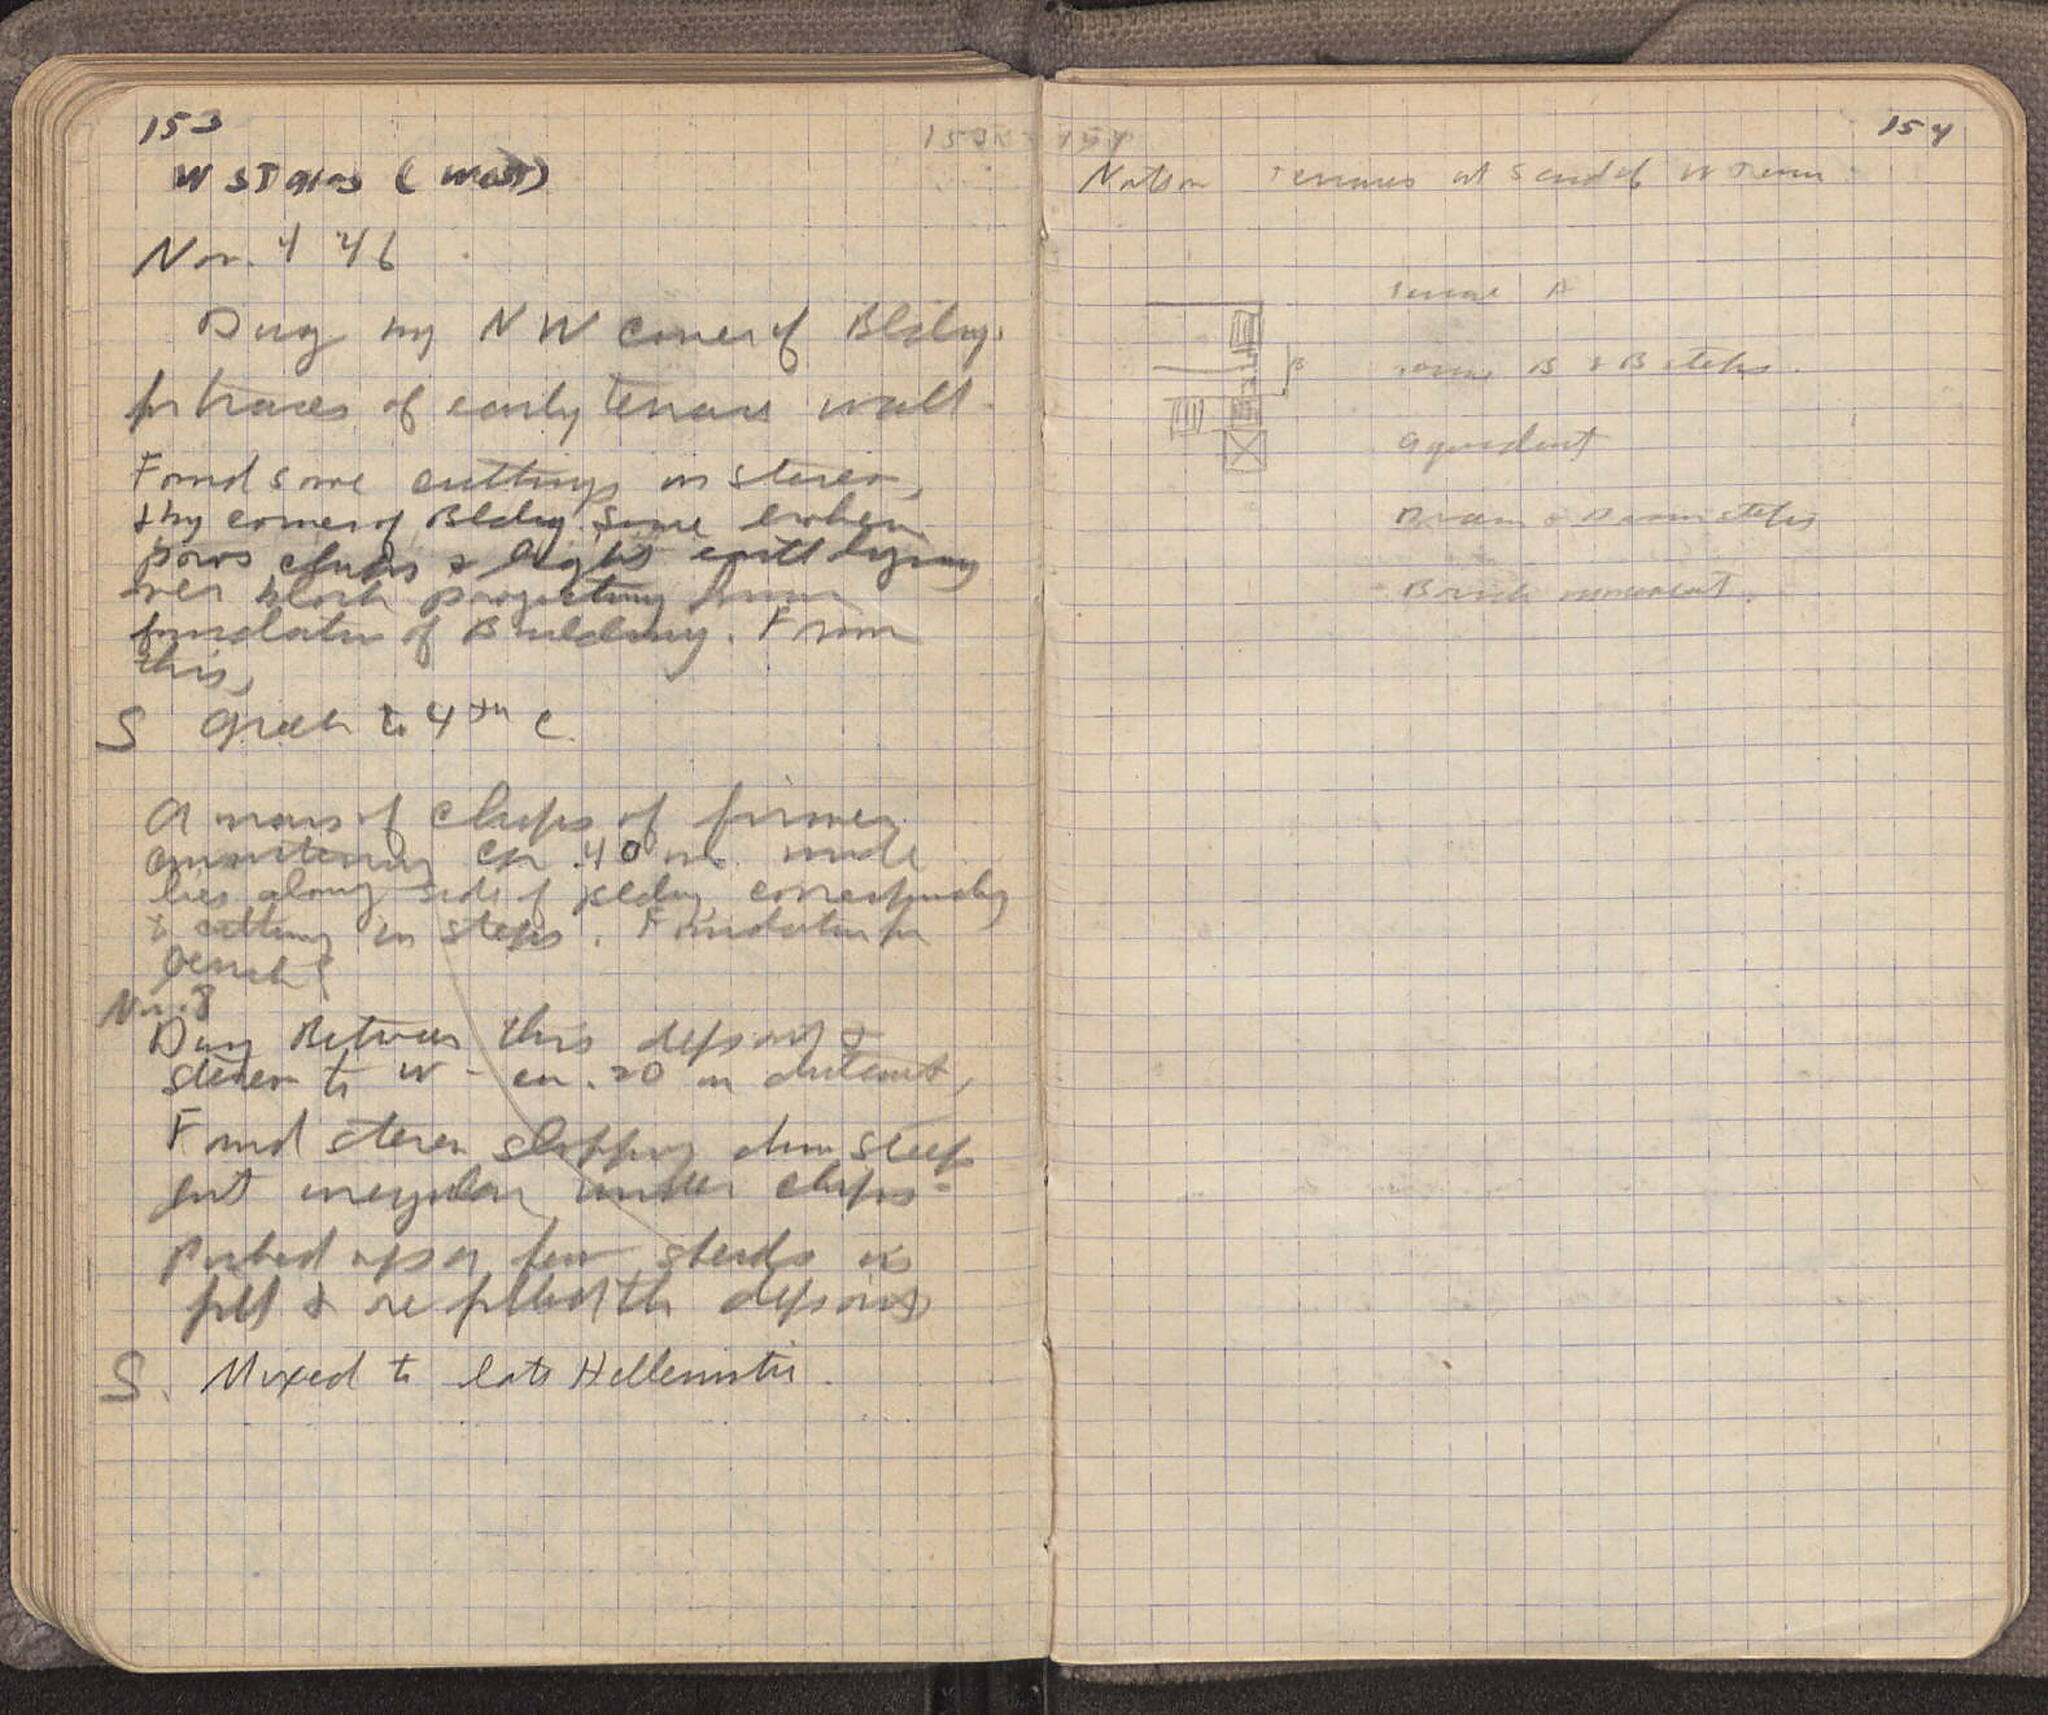 153
W Stairs (West)
Nov. 4 '46
Dug by NW corner of Bldg.
for traces of early terrace wall.
Found some cuttings in stereo,
& by corner of Bldg. some broken
poros chips & light earth lying
over block projecting from
foundation of Building. From
this,
S Greek to 4th c.
A mass of chips of
ca .40 m. wide
lies along side of Bldg corresponding
to cutting in steps. Foundation for
bench?
Nov. 8
Dug Between this deposit &
stereo to W - ca. .20 m distant,
Found stereo sloping down steep
but irregular under chips -
Picked up a few sherds in
fill & the deposit
S. Mixed to late Hellenistic.
153 - 154
154
Notes on Terraces at S end of W Terr.
Terrace A
B
Terrace B & B steps.
Aqueduct
steps